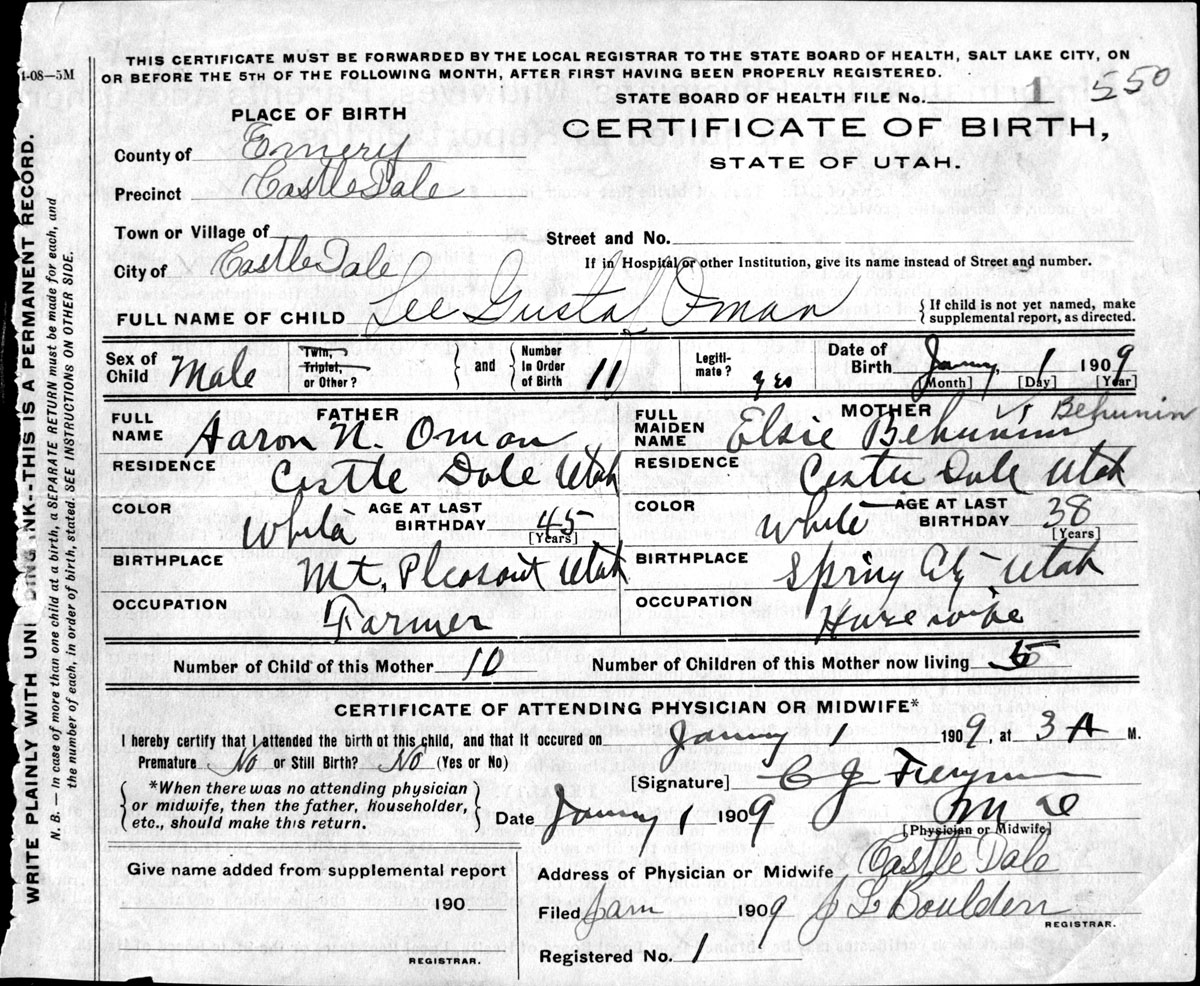 THIS CERTIFICATE MUST BE FORWARDED BY THE LOCAL REGISTRAR TO THE STATE BOARD OF HEALTH, SALT LAKE CITY, ON
OR BEFORE THE 5TH OF THE FOLLOWING MONTH, AFTER FIRST HAVING BEEN PROPERLY REGISTERED.
-08—5M
STATE BOARD OF HEALTH FILE No. 1 550
PLACE OF BIRTH
CERTIFICATE OF BIRTH,
STATE OF UTAH.
County of Emery
Precinct Castle Dale
Town or Village of
Street and No.
City of Castle Dale
If in Hospital or other Institution, give its name instead of Street and number.
FULL NAME OF CHILD Lee Gustaf Oman
{ If child is not yet named, make
supplemental report, as directed.
Sex of Child Male
Twin, Triplet, or Other?
} and {
Number in Order of Birth 11
Legiti-mate? yes
Date of Birth Janny, 1 1909
[Month] [Day] [Year]
FATHER
FULL NAME Aaron N. Oman
RESIDENCE Castle Dale Utah
COLOR White
AGE AT LAST BIRTHDAY 45
[Years]
BIRTHPLACE Mt, Pleasant Utah
OCCUPATION Farmer
MOTHER
FULL MAIDEN NAME Elsie Behunin Behunin
RESIDENCE Castle Dale Utah
COLOR White
AGE AT LAST BIRTHDAY 38
[Years]
BIRTHPLACE Spring City Utah
OCCUPATION Housewife
Number of Child of this Mother 10
Number of Children of this Mother now living
CERTIFICATE OF ATTENDING PHYSICIAN OR MIDWIFE*
I hereby certify that I attended the birth of this child, and that it occured on Janny 1 1909, at 3 A M.
Premature No or Still Birth? No (Yes or No)
[Signature] C J
{ *When there was no attending physician
or midwife, then the father, householder,
etc., should make this return. }
Date Janny 1 1909
M D
[Physician or Midwife]
Give name added from supplemental report
190
REGISTRAR.
Address of Physician or Midwife Castle Dale
Filed Jan 1909 J L Boulden
REGISTRAR.
Registered No. 1
WRITE PLAINLY WITH UNFADING INK--THIS IS A PERMANENT RECORD.
N. B.—In case of more than one child at a birth, a SEPARATE RETURN must be made for each, and
the number of each, in order of birth, stated. SEE INSTRUCTIONS ON OTHER SIDE.